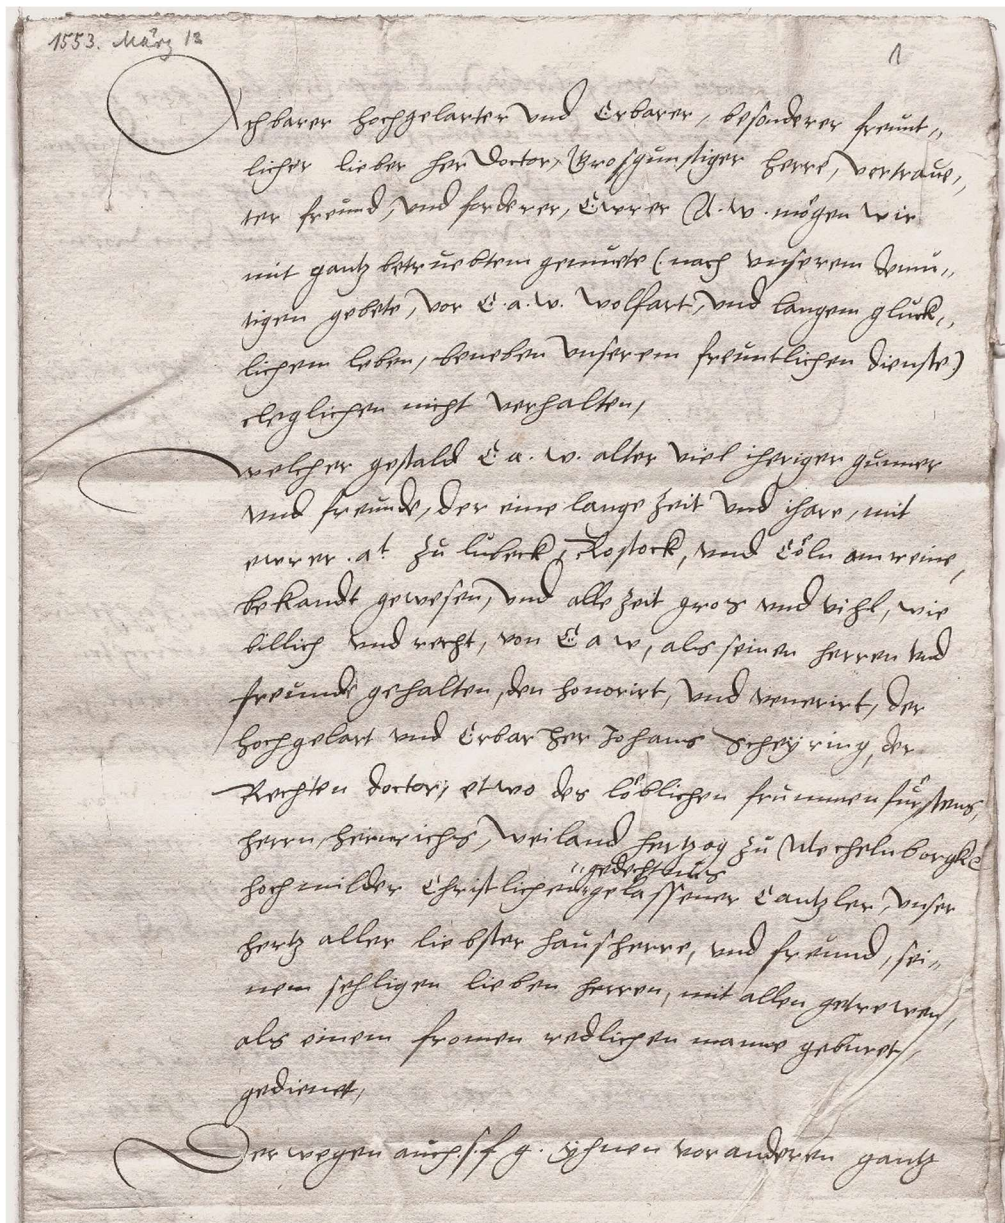 1553. März 13
1
Achbarer hochgelarter vnd Erbarer, besonderer freunt-,,
licher lieber her Doctor, Grosgunstiger herre, vertraue-,,
ter freund, vnd forderer, Ewrer A. w. mögen wir
mit gantz betruebtem gemuete (nach vnserem demu-,,
tigen gebete, vor E. a. w. wolfart, vnd langem gluck-,,
lichem leben, beneben vnserem freuntlichen dienste)
cleglichen nicht verhalten,
welcher gestald E. a. w. alter viel iheriger gunner
vnd freunde, der eine lange zeit vnd ihare, mit
ewrer .at. zu lubeck, Rostock, vnd Cöln am reine,
bekandt gewesen, vnd alle zeit gros vnd vihl, wie
billich vnd recht, von E a w, als seinen herren vnd
freunde gehalten, den honorirt, vnd venerirt, der
hochgelart vnd Erbar her Johans Scheyring, der
Rechten doctor, etwo des löblichen frummen fürstens,
herrn heinrichs, weiland hertzog zu Mechelnborgk
hochmilder Christlichen gedechtnus gelassener Cantzler, vnser
hertz aller liebster hausherre, vnd freund, sei-,,
nem sehligen lieben herren, mit allen getrewen,
als einem fromen redlichen manne geburet,
gedienet,
Derwegen auch s. f. g. yhnen vor anderen gantz